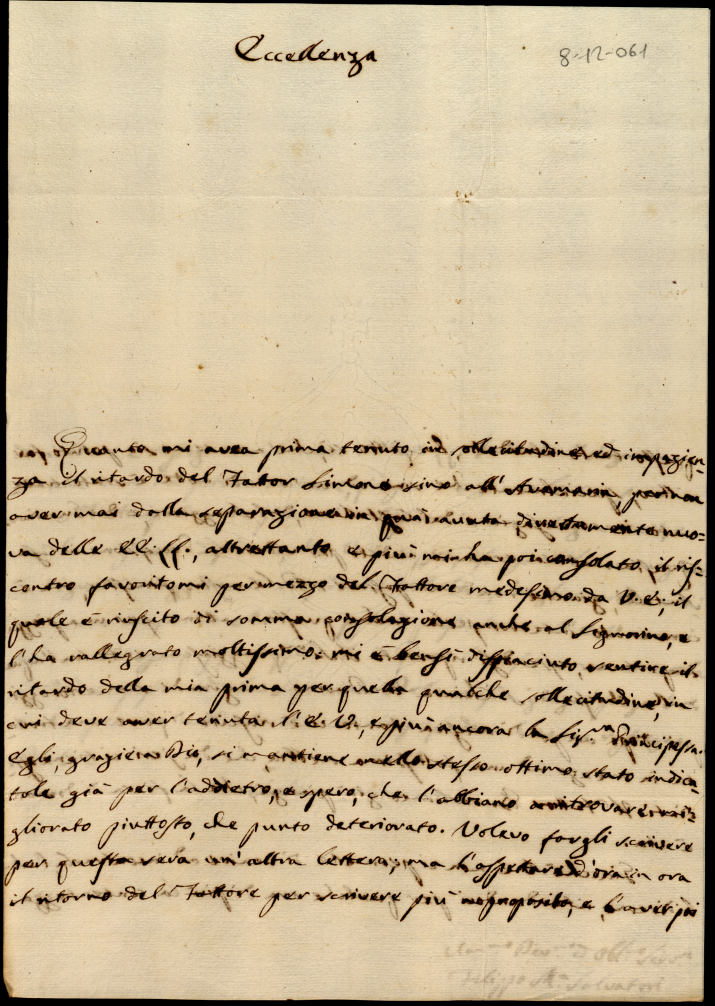 Eccellenza
8-12-061
Quanto mi avea prima tenuto in sollecitudine, ed impazien-
za il ritardo del Fattor Simone sino all'Avemaria, per non
aver mai dalla separazione in quà avuta direttamente nuo-
va delle EE. VV., altrettanto e più mi ha poi consolato il ris-
contro favoritomi per mezzo del Fattore medesimo da V. E., il
quale è riuscito di somma consolazione anche al Signorino, e
l'ha rallegrato moltissimo. mi è bensì dispiaciuto sentire il
ritardo della mia prima per quella qualche sollecitudine, in
cui deve aver tenuta l'E. V., e più ancora la Sig.ra Principessa.
Egli, grazie a Dio, si mantiene nello stesso ottimo stato indica-
tole già per l'addietro, e spero, che l'abbiano a ritrovare mi-
gliorato piuttosto, che punto deteriorato. Volevo fargli scrivere
per questa sera un'altra lettera, ma l'aspettare d'ora in ora
il ritorno del Fattore per scrivere più a proposito, e l'aver poi
Filippo M.a Salvatori